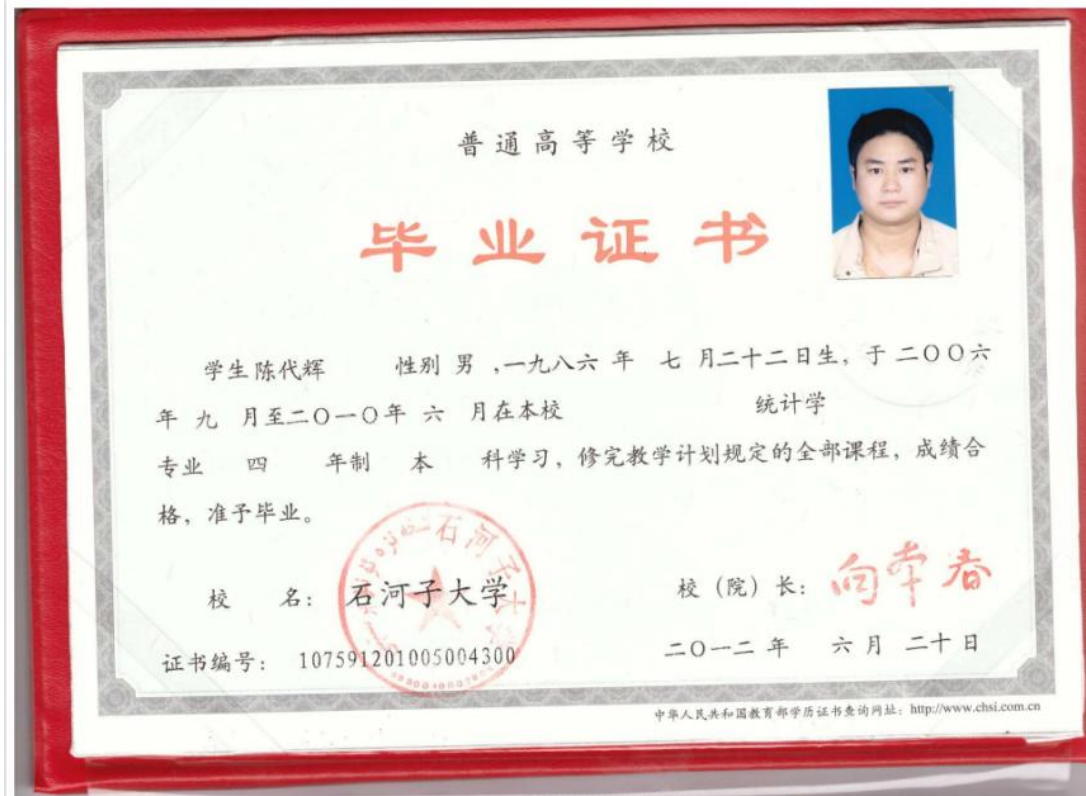 普通高等学校
毕业证书
学生陈代辉 性别 男 ,一九八六 年 七 月二十二日生，于 二〇〇六
年 九 月至二〇一〇年 六 月在本校 统计学
专业 四 年制 本 科学习，修完教学计划规定的全部课程，成绩合
格，准予毕业。
石河子大学
校 名： 石河子大学 校（院）长： 向本春
证书编号： 107591201005004300 二〇一二 年 六 月 二十 日
中华人民共和国教育部学历证书查询网址：http://www.chsi.com.cn